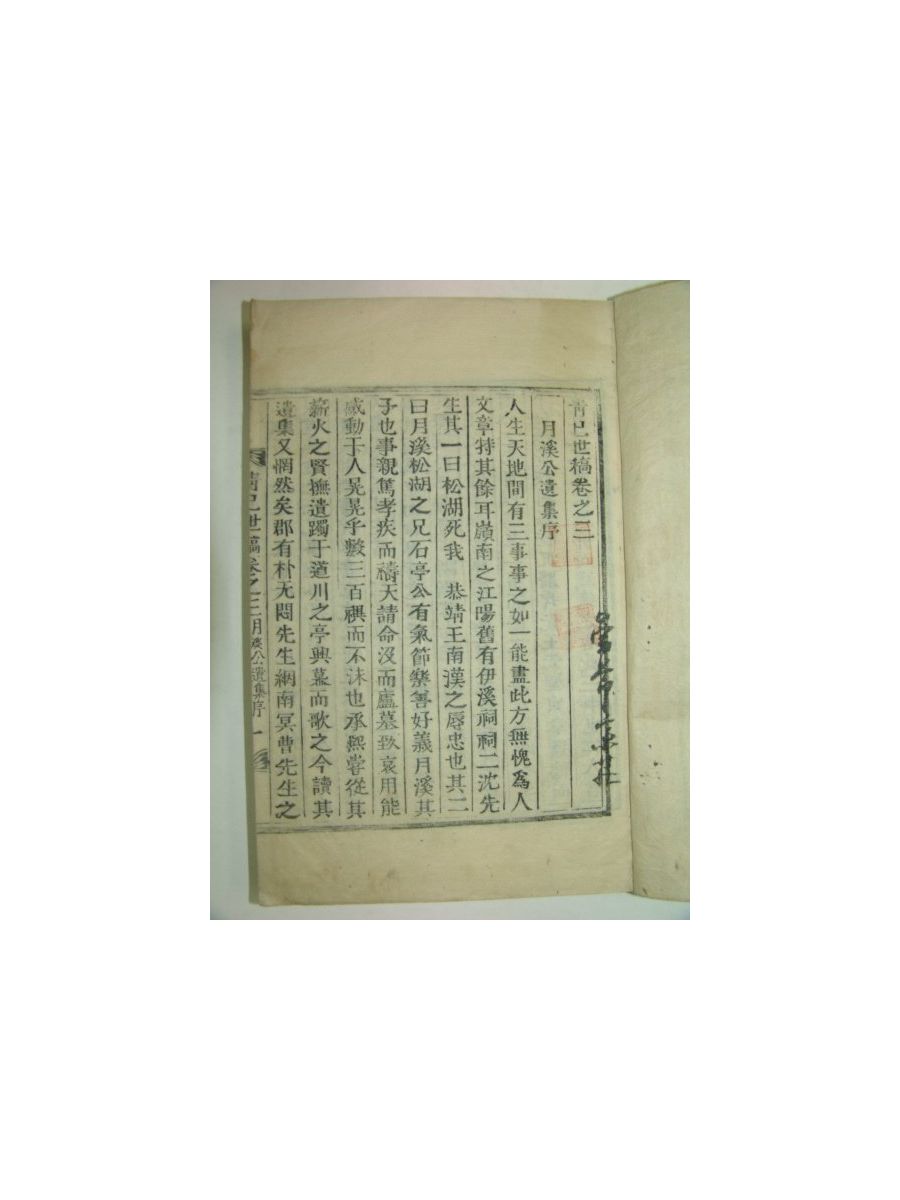 靑巳世稿卷之三
月溪公遺集序
人生天地間有三事事之如一能盡此方無愧爲人
文章特其餘耳嶺南之江陽舊有伊溪祠祠二沈先
生其一曰松湖死我 恭靖王南漢之辱忠也其二
曰月溪松湖之兄石亭公有氣節樂善好義月溪其
子也事親篤孝疾而禱天請命沒而廬墓致哀用能
感動于人晃晃乎數三百禩而不沫也承熙嘗從其
薪火之賢撫遺躅于道川之亭興慕而歌之今讀其
遺集又惘然矣郡有朴无悶先生綱南冥曹先生之
靑巳世稿卷之三月溪公遺集序 一